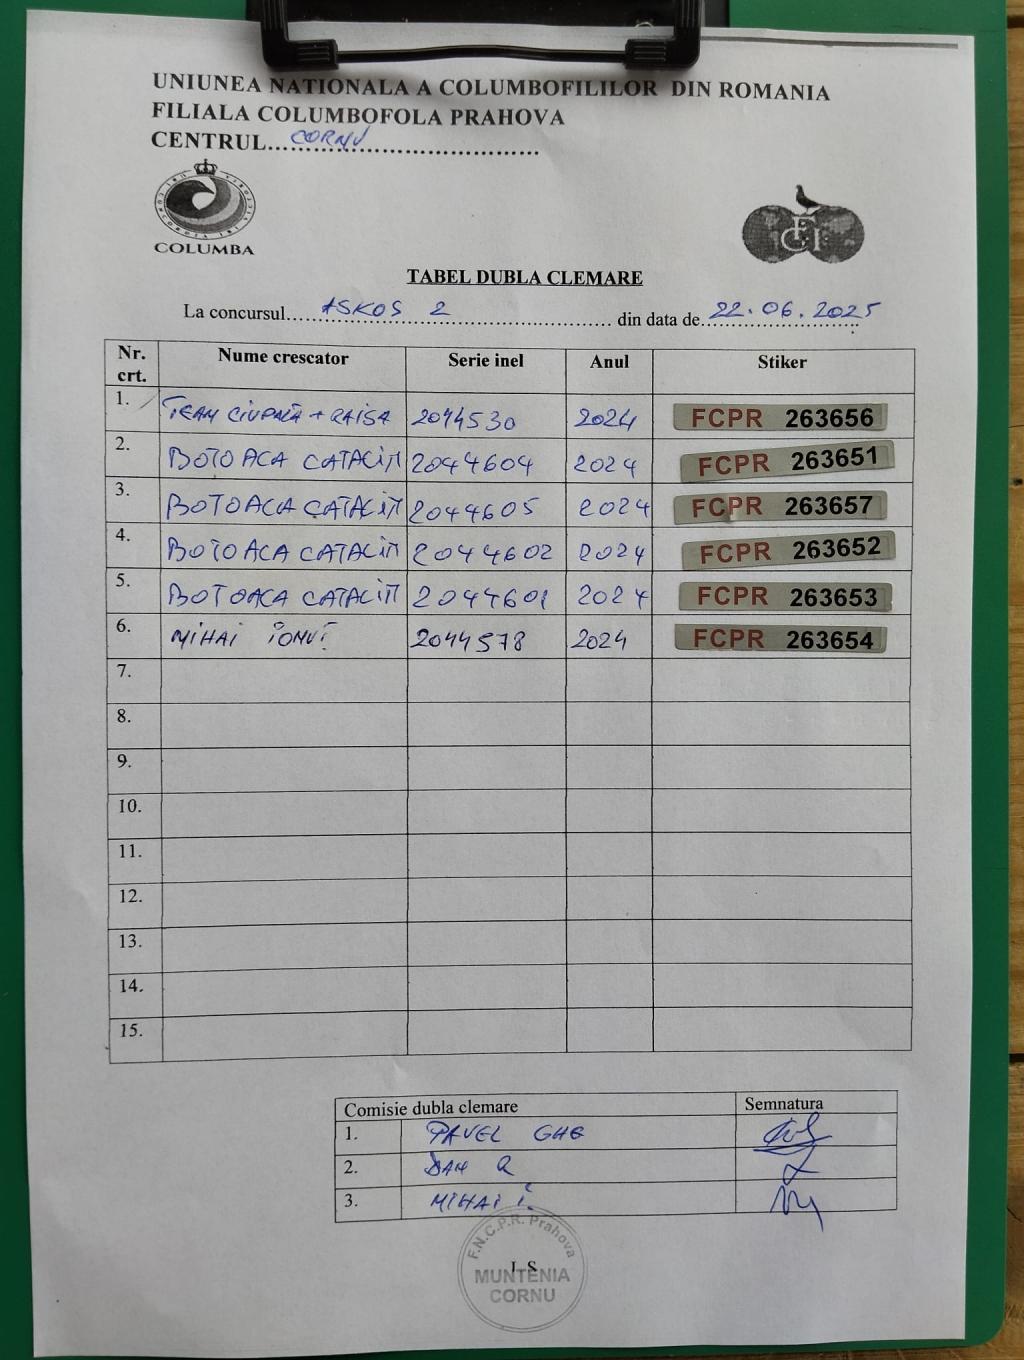 UNIUNEA NATIONALA A COLUMBOFILILOR DIN ROMANIA
FILIALA COLUMBOFOLA PRAHOVA
CENTRUL...CORNU...
COLUMBA
FCI
TABEL DUBLA CLEMARE
La concursul... ASKOS 2 ... din data de... 22.06.2025
Nr. crt. Nume crescator Serie inel Anul Stiker
1. TEAM CIUPALĂ + RAISA 2044530 2024 FCPR 263656
2. BOTOACA CATALIN 2044604 2024 FCPR 263651
3. BOTOACA CATALIN 2044605 2024 FCPR 263657
4. BOTOACA CATALIN 2044602 2024 FCPR 263652
5. BOTOACA CATALIN 2044601 2024 FCPR 263653
6. MIHAI IONUȚ 2044578 2024 FCPR 263654
7.
8.
9.
10.
11.
12.
13.
14.
15.
Comisie dubla clemare Semnatura
1. PAVEL GHE
2. DAN R
3. MIHAI I.
F.N.C.P.R. Prahova
L.S
MUNTENIA
CORNU